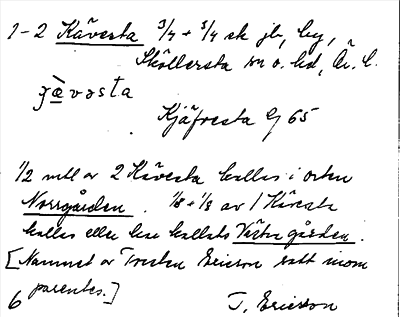 1-2 Kävesta 3/4 + 5/4 sk jb, by,
Sköllersta sn o. hd, Ör. l.
Kjäfvesta EJ 65
1/2 mtl av 2 Kävesta kallas i orten
Norrgården. 1/8 + 1/8 av 1 Kävesta
kallas eller har kallats Västra gården.
[Namnet av Torsten Ericson satt inom
parentes.]
6 T. Ericson